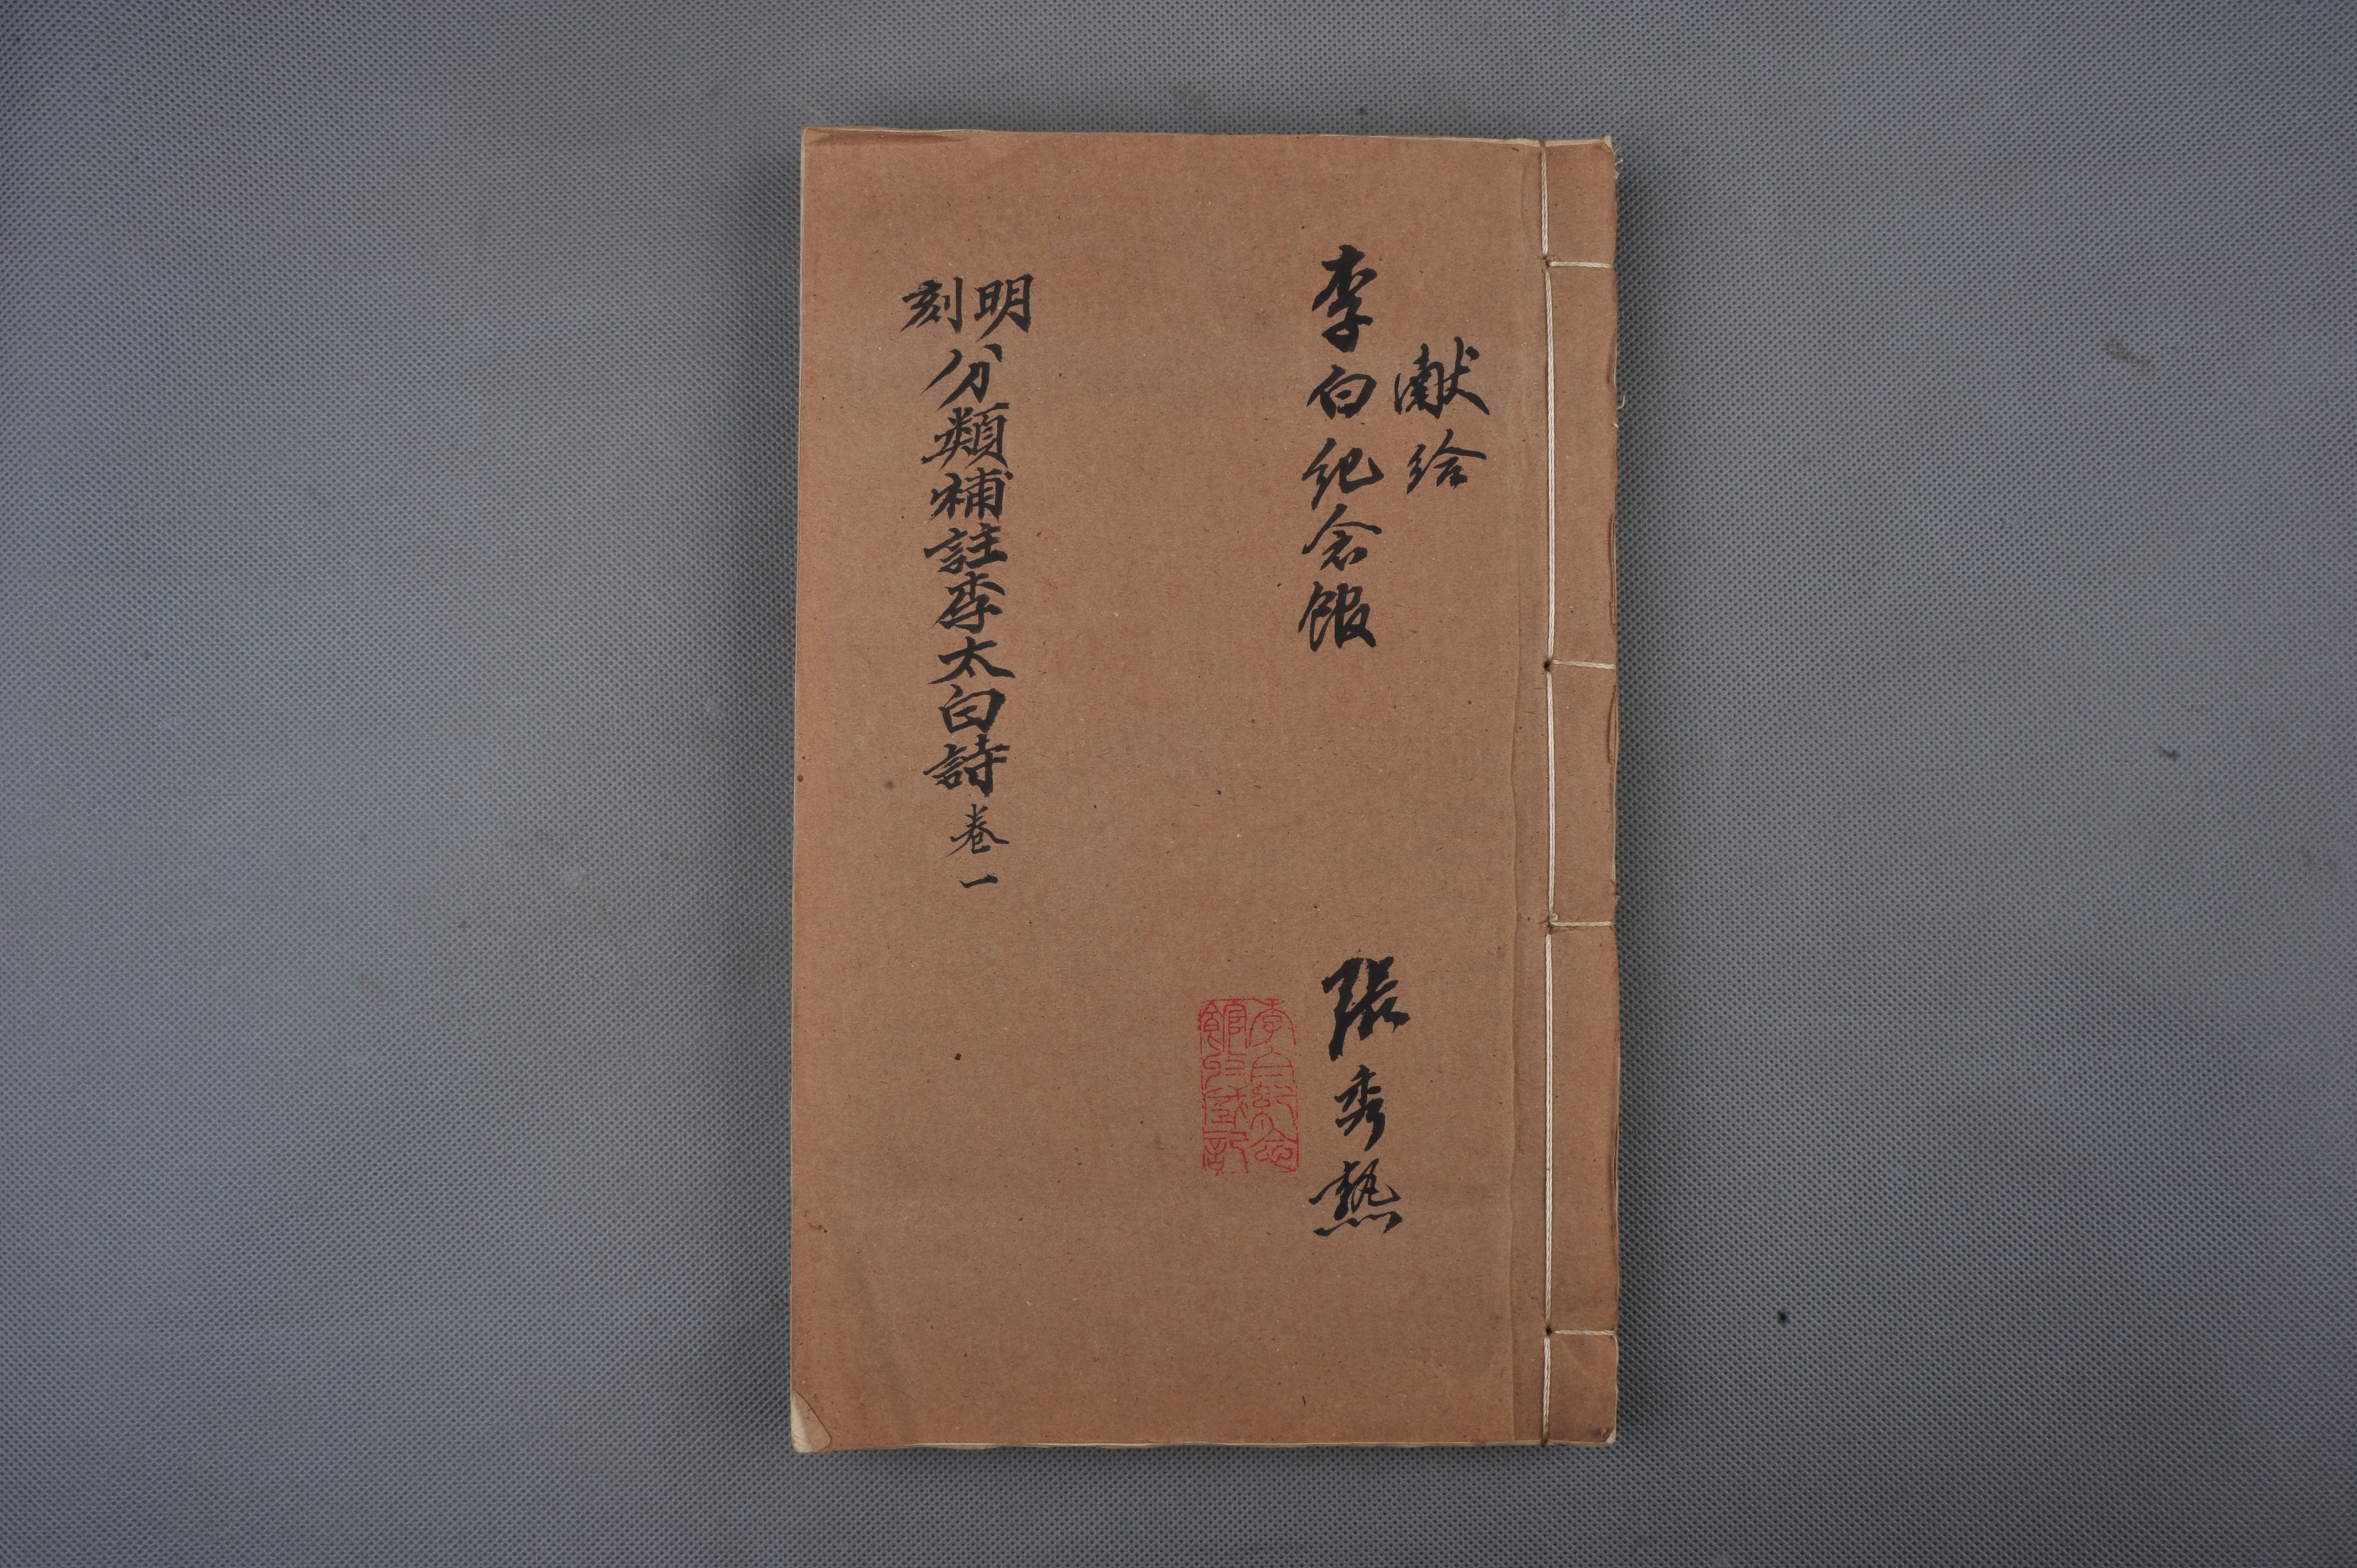 献给
李白纪念馆
張秀熟
李白紀念
館收藏記
明刻
分類補註李太白詩卷一